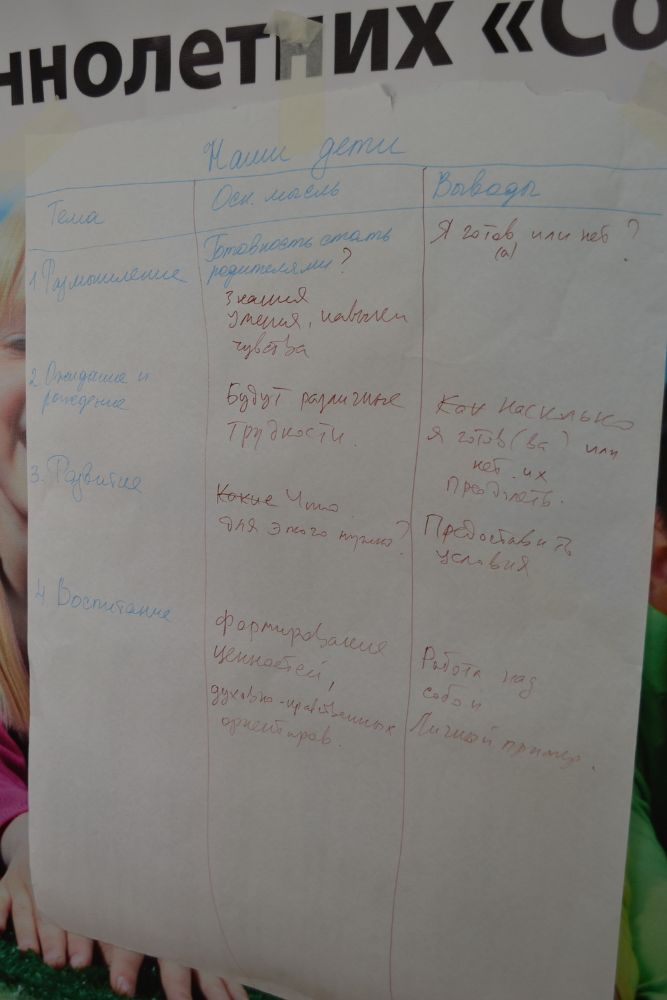 ннолетних «Со
Наши дети
Тема
Осн. мысль
Выводы
1. Размышление
Готовность стать
родителями?
Знания
умения, навыки
чувства
Я готов или нет?
(а)
2. Ожидание и
рождение
Будут различные
трудности.
Как насколько
я готов(ва) или
нет их
преодолеть.
3. Развитие
Какие Что
для этого нужно?
Предоставить
условия
4. Воспитание
Формирование
ценностей,
духовно-нравственных
ориентиров.
Работа над
собой
Личной пример.